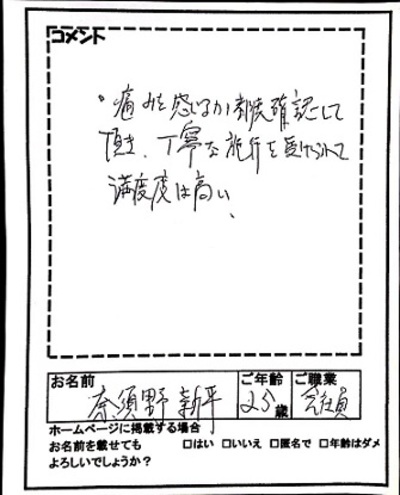 コメント
・痛みを感じるか都度確認して
頂き、丁寧な施術を受けられて
満度は高い、
お名前 ご年齢 ご職業
奈須野 新平 25歳 会社員
ホームページに掲載する場合
お名前を載せても □はい □いいえ □匿名で □年齢はダメ
よろしいでしょうか？